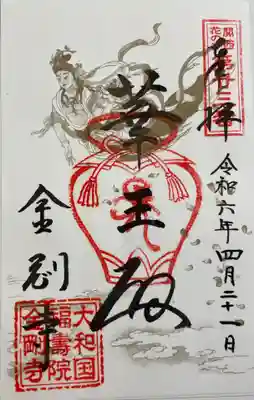 奉拝
関西
花の寺
第廿三番
令和六年四月二十一日
華王殿
金剛寺
大和国
福寿院
金剛寺